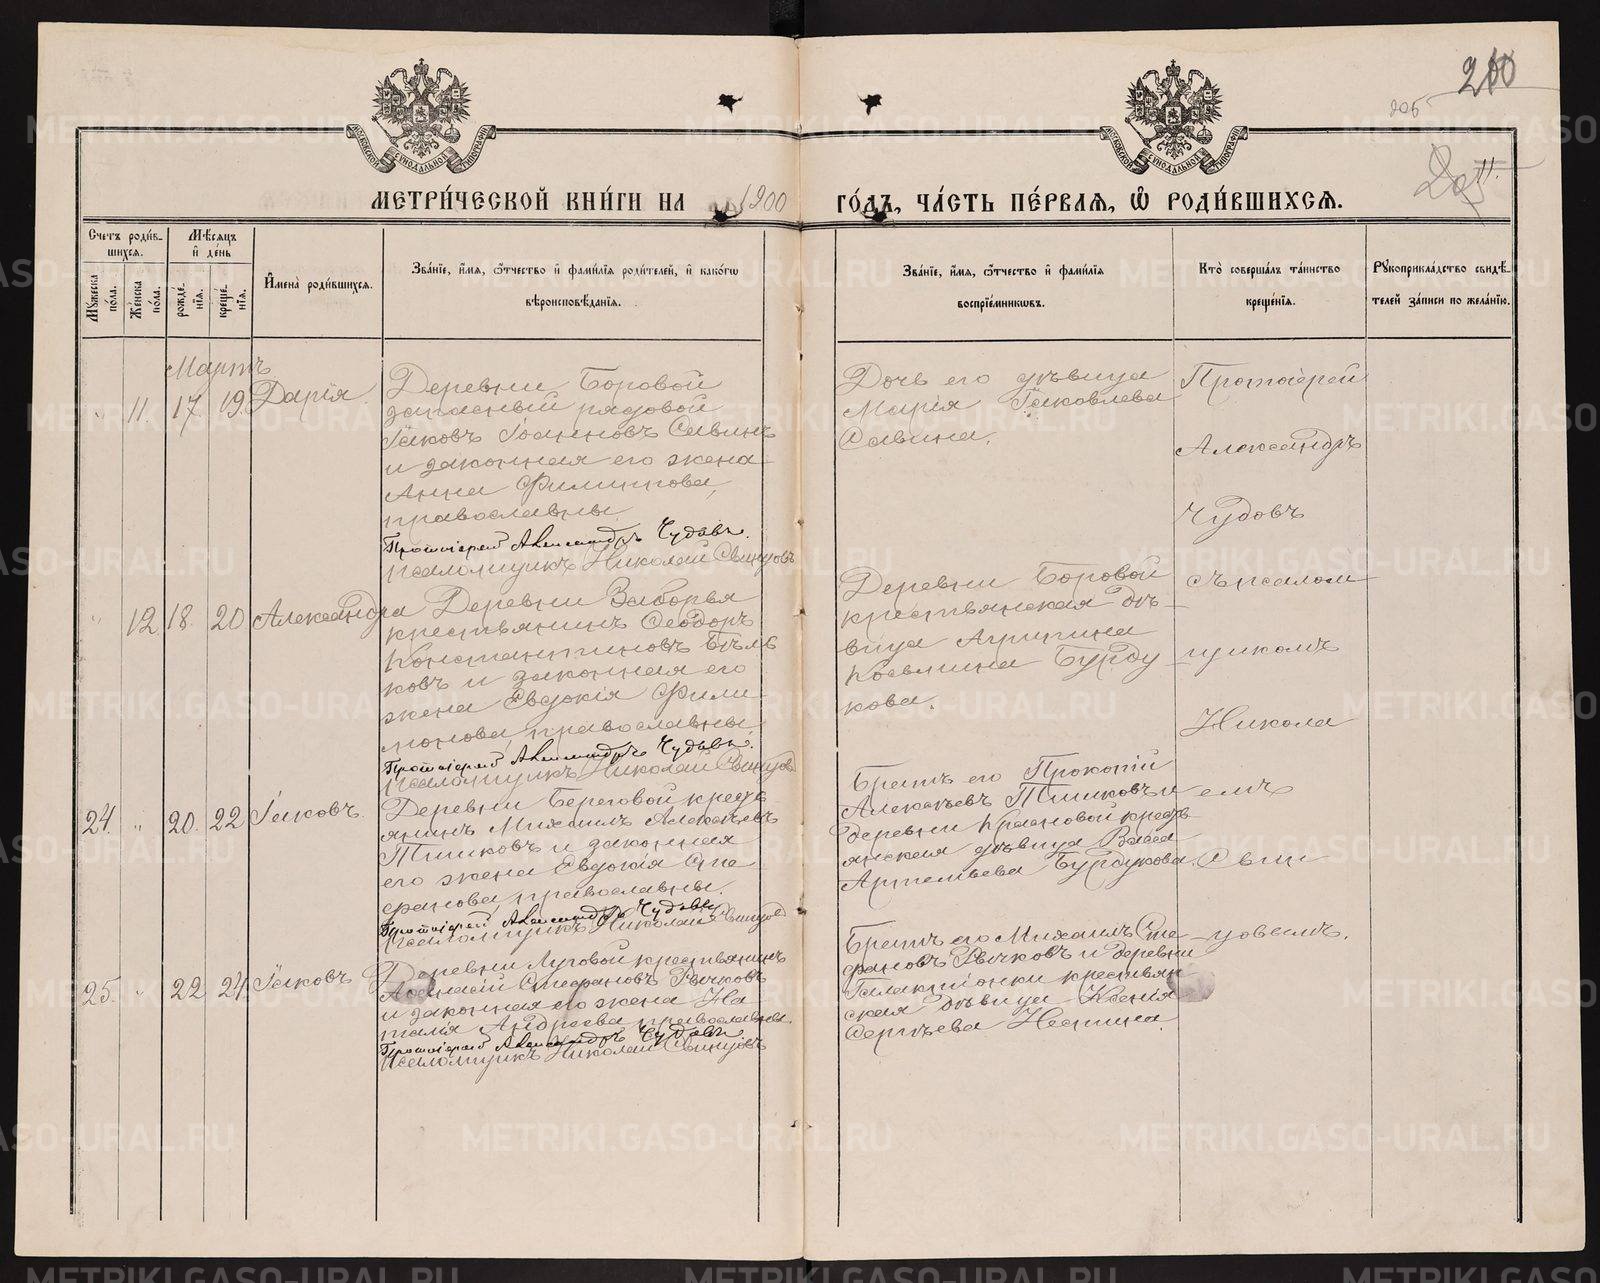 200
205
11.
МЕТРИ́ЧЕСКОЙ КНИ́ГИ НА 1900 ГО́ДЪ, ЧА́СТЬ ПЕ́РВАЯ, Ѡ҆ РОДИ́ВШИХСЯ.
Счетъ роди́вшихся.
Мѣ́сяцъ и҆ де́нь
Мꙋ́жеска по́ла.
Же́нска по́ла.
рожде́нїя.
креще́нїя.
И҆мена̀ роди́вшихся.
Зва́нїе, и҆́мя, ѻ҆́тчество и҆ фами́лїя роди́телей, и҆ како́гѡ
вѣроисповѣ́данїя.
Зва́нїе, и҆́мя, ѻ҆́тчество и҆ фами́лїя
воспрїе́мникѡвъ.
Кто̀ соверша́лъ та́инство
креще́нїя.
Рꙋкоприкла́дство свидѣ́-
телей за́писи по жела́нїю.
Мартъ
" 11. 17. 19. Дарія
Деревни Боровой
запасный рядовой
Іаковъ Іоанновъ Савинъ
и законная его жена
Анна Филиппова,
православны.
Протоіерей Александръ Чудовъ.
Псаломщикъ Николай Свинцовъ
Дочь его дѣвица
Марія Іаковлева
Савина.
Протоіерей
Александръ
Чудовъ
съ псалом
щикомъ
Никола
емъ
Свин
цовымъ.
" 12 18. 20 Александра
Деревни Заборья
крестьянинъ Ѳеодоръ
Константиновъ Бѣля
ковъ и законная его
жена Евдокія Фили
монова, православны.
Протоіерей Александръ Чудовъ.
Псаломщикъ Николай Свинцовъ
Деревни Боровой
крестьянская дѣ-
вица Агрипина
Козьмина Бурду
кова.
24. " 20. 22 Іаковъ.
Деревни Береговой кресть
янинъ Михаилъ Алексѣевъ
Пшиковъ и законная
его жена Евдокія Сте
фанова, православны.
Протоіерей Александръ Чудовъ
Псаломщикъ Николай Свинцовъ
Братъ его Прокопій
Алексѣевъ Пшиковъ и
деревни Крановой кресть
янская дѣвица Васса
Артемьева Бурдукова.
25. " 22 24. Іаковъ
Деревни Луговой крестьянинъ
Аѳанасій Стефановъ Рычковъ
и законная его жена На
талія Андреева, православны.
Протоіерей Александръ Чудовъ
Псаломщикъ Николай Свинцовъ
Братъ его Михаилъ Сте
фановъ Рычковъ и деревни
Галактіонки крестьян
ская дѣвица Ксенія
Сергѣева